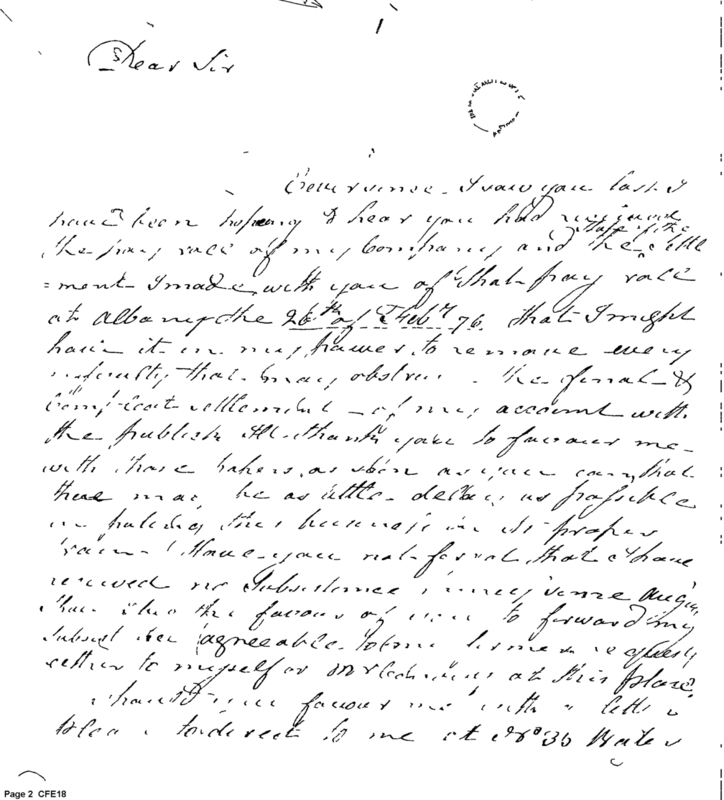 1
Dear Sir
Ever since I saw you last I
have been hoping to hear you had received
State of the
the pay roll of my Company and the settle
=ment I made with you of that pay roll
at Albany the 26th of Feby 76. that I might
have it in my power to remove every
difficulty that may obstruct the final &
compleat settlement of my account with
the publick Ill thank you to favour me
with those papers as soon as you can, that
there may be as little delay as possible
in puting this business in its proper
train. Have you not forgot that I have
received no Subsistence since
the favour of you to forward my
Subsist agreeable to
either to myself or at this place
should you favour me with a letter
to direct to me at No 35 Water
Page 2 CFE18